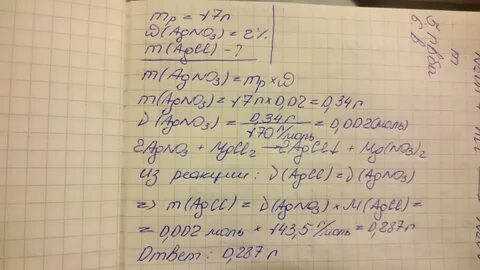 mр = 17г
ω(AgNO3) = 2%
m(AgCl) - ?
m(AgNO3) = mр × ω
m(AgNO3) = 17г × 0,02 = 0,34г
ν(AgNO3) = 0,34г / 170 г/моль = 0,002(моль)
2AgNO3 + MgCl2 → 2AgCl↓ + Mg(NO3)2
из реакции: ν(AgCl) = ν(AgNO3)
=> m(AgCl) = ν(AgCl) × M(AgCl) =
= 0,002 моль × 143,5 г/моль = 0,287 г
Ответ: 0,287 г